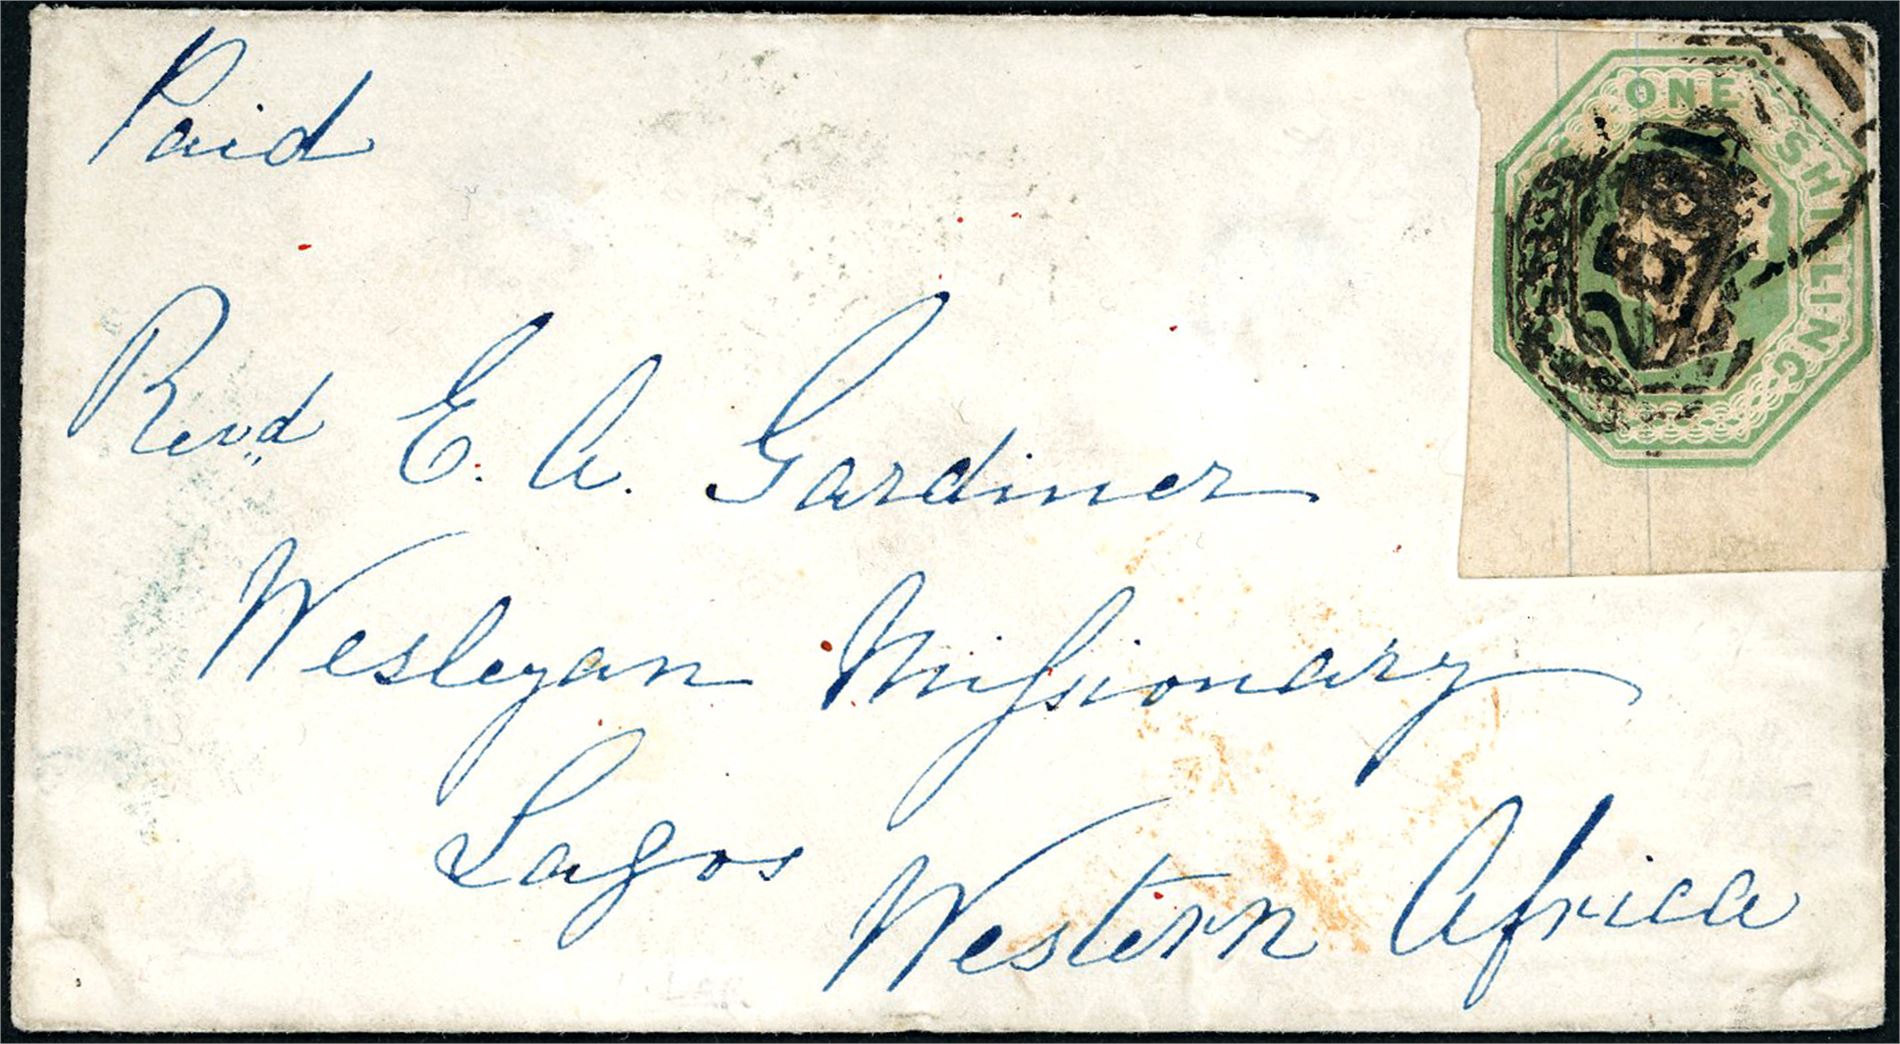 Paid
ONE SHILLING
Revd E. A. Gardiner
Wesleyan Missionary
Lagos
Western Africa